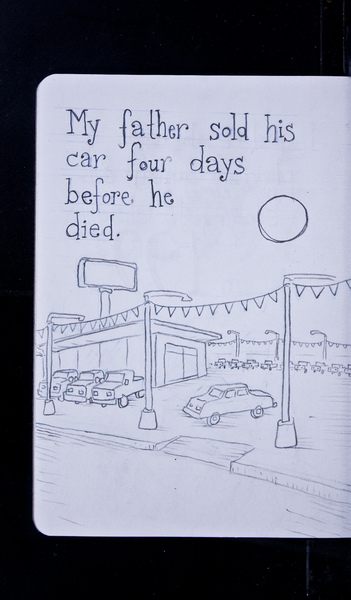 My father sold his
car four days
before he
died.